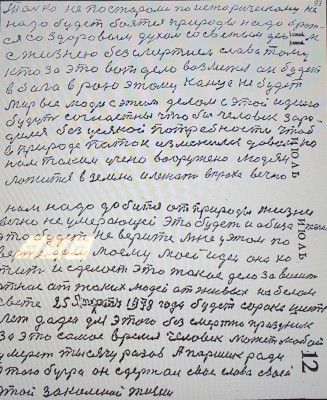 Только не постаром по историческому не
надо будет боятся природы надо врож-
ся со здоровым духом со светым дел ем
с жизнею безсмертием слава тому
кто за это воти дело возмется он будет
в бога в раю этому канца не будет
Мы все люди с этим делом с этой идиого
будут согласны что бы человек заро-
дился без усякой потребности чтоб
в природе паток изменился довест но
нам таким учено вооружено людям
ложится в землю и лежать в прахе вечно
нам надо добится от природы жизни
вечно не умерающей Это будет и обиза
это будет не верите мне у этом по
верте делу моему моей идеи она хо
тит и сделает это такое дело зависит
от нас от таких людей от живых на белом
свете 25 1979 года будет сорок шесть
лет для этого без смертно празник
За это самое время человек может любой
умереть тысячу разов А паршик ради
этого бугра он сдержал свое слово своей
этой закалкой жизни
ИЮЛЬ
ИЮЛЬ
12